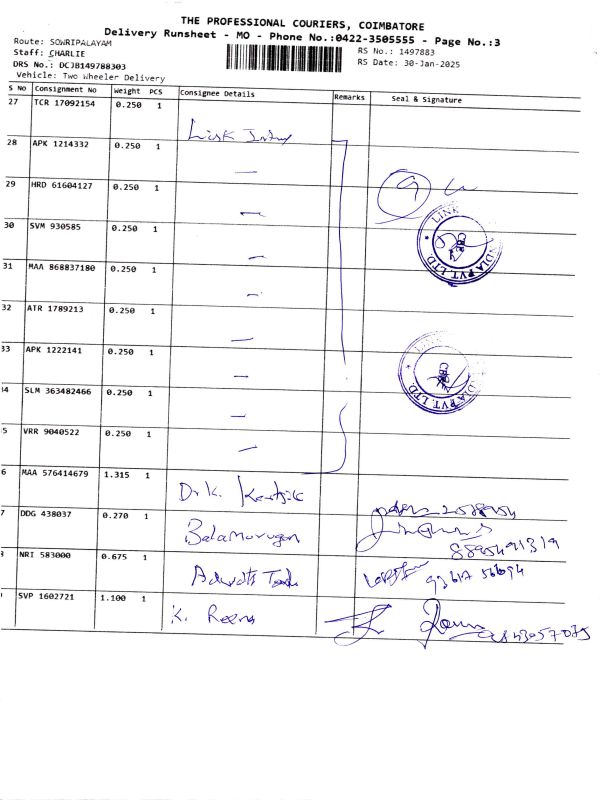 THE PROFESSIONAL COURIERS, COIMBATORE
Delivery Runsheet - MO - Phone No.:0422-3505555 - Page No.:3
Route: SOWRIPALAYAM
Staff: CHARLIE
DRS No.: DCJB149788303
Vehicle: Two Wheeler Delivery
RS No.: 1497883
RS Date: 30-Jan-2025
S No Consignment No Weight PCS Consignee Details Remarks Seal & Signature
27 TCR 17092154 0.250 1 Link
28 APK 1214332 0.250 1 —
29 HRD 61604127 0.250 1 —
30 SVM 930585 0.250 1 —
31 MAA 868837180 0.250 1 —
32 ATR 1789213 0.250 1 —
33 APK 1222141 0.250 1 —
34 SLM 363482466 0.250 1 —
5 VRR 9040522 0.250 1 —
6 MAA 576414679 1.315 1 Dr K. Karthik
7 DDG 438037 0.270 1 Balamurugan
8895491319
NRI 583000 0.675 1
SVP 1602721 1.100 1 K. Reena
LINK INDIA PVT. LTD.
CBE
INDIA PVT. LTD.
CBE